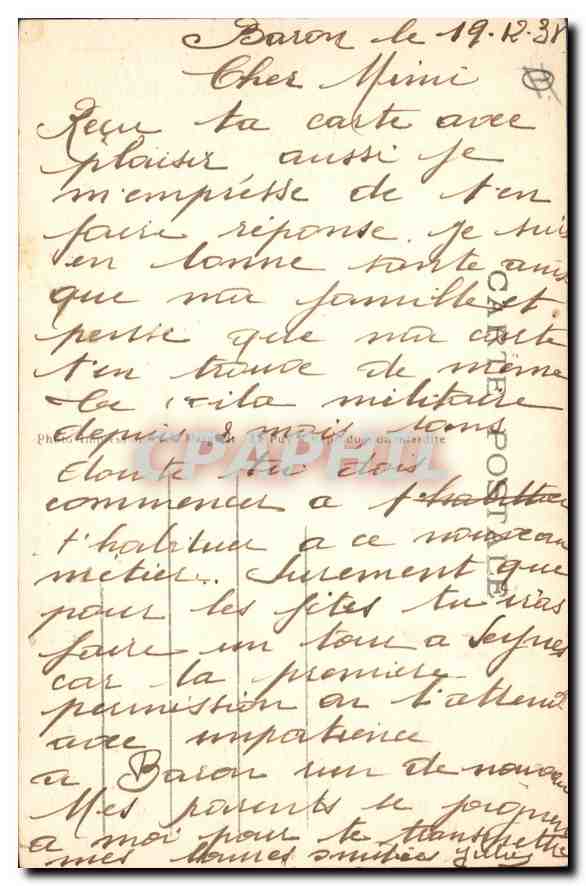 Baron le 19.12.38
Cher Mimi
Reçu ta carte avec
plaisir aussi je
m'empresse de t'en
faire réponse. Je suis
en bonne sante ains
que ma famille et
pense que ma carte
t'en trouve de même
militaire
depuis 2 mois sans
doute tu dois
commencer a t'habituer
t'habituer a ce nouveau
métier.. Surement que
pour les fêtes tu iras
faire un tour a Seynes
car la première
permission on l'attend
avec impatience
a Baron rien de nouveau
Mes parents se joignent
a moi pour te transmettre
mes bonnes amitiés
CARTE POSTALE
CPAPHIL